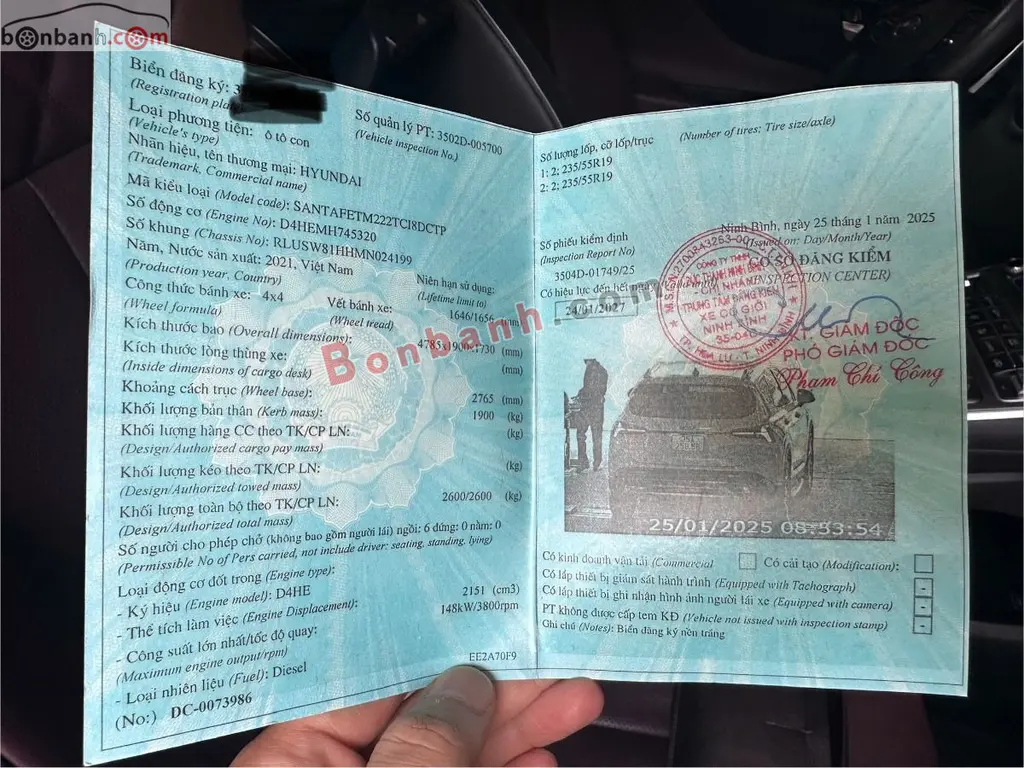 bonbanh.com
Biển đăng ký: 3
(Registration pla
Số quản lý PT: 3502D-005700
(Vehicle inspection No.)
Loại phương tiện: ô tô con
(Vehicle's type)
Nhãn hiệu, tên thương mại: HYUNDAI
(Trademark, Commercial name)
Mã kiểu loại (Model code): SANTAFETM222TCI8DCTP
Số động cơ (Engine No): D4HEMH745320
Số khung (Chassis No): RLUSW81HHMN024199
Năm, Nước sản xuất: 2021, Việt Nam
(Production year, Country)
Niên hạn sử dụng:
(Lifetime limit to)
Công thức bánh xe: 4x4
(Wheel formula)
Vết bánh xe: 1646/1656 (mm)
(Wheel tread)
Kích thước bao (Overall dimensions): 4785x1900x1730 (mm)
Kích thước lòng thùng xe: (mm)
(Inside dimensions of cargo desk)
Khoảng cách trục (Wheel base): 2765 (mm)
Khối lượng bản thân (Kerb mass): 1900 (kg)
Khối lượng hàng CC theo TK/CP LN: (kg)
(Design/Authorized cargo pay mass)
Khối lượng kéo theo TK/CP LN: (kg)
(Design/Authorized towed mass)
Khối lượng toàn bộ theo TK/CP LN: 2600/2600 (kg)
(Design/Authorized total mass)
Số người cho phép chở (không bao gồm người lái) ngồi: 6 đứng: 0 nằm: 0
(Permissible No of Pers carried, not include driver: seating, standing, lying)
Loại động cơ đốt trong (Engine type):
- Ký hiệu (Engine model): D4HE
- Thể tích làm việc (Engine Displacement): 2151 (cm3)
- Công suất lớn nhất/tốc độ quay: 148kW/3800rpm
(Maximum engine output/rpm)
- Loại nhiên liệu (Fuel): Diesel
EE2A70F9
(No:) DC-0073986
Số lượng lốp, cỡ lốp/trục (Number of tires: Tire size/axle)
1: 2; 235/55R19
2: 2; 235/55R19
Ninh Bình, ngày 25 tháng 1 năm 2025
(Issued on: Day/Month/Year)
Số phiếu kiểm định
(Inspection Report No)
3504D-01749/25
CƠ SỞ ĐĂNG KIỂM
(INSPECTION CENTER)
Có hiệu lực đến hết ngày
24/01/2027
TRUNG TÂM ĐĂNG KIỂM
XE CƠ GIỚI
NINH BÌNH
KT. GIÁM ĐỐC
PHÓ GIÁM ĐỐC
Phạm Chí Công
Bonbanh.com
25/01/2025 08:53:54
Có kinh doanh vận tải (Commercial
Có cải tạo (Modification):
Có lắp thiết bị giám sát hành trình (Equipped with Tachograph) -
Có lắp thiết bị ghi nhận hình ảnh người lái xe (Equipped with camera) -
PT không được cấp tem KĐ (Vehicle not issued with inspection stamp) -
Ghi chú (Notes): Biển đăng ký nền trắng